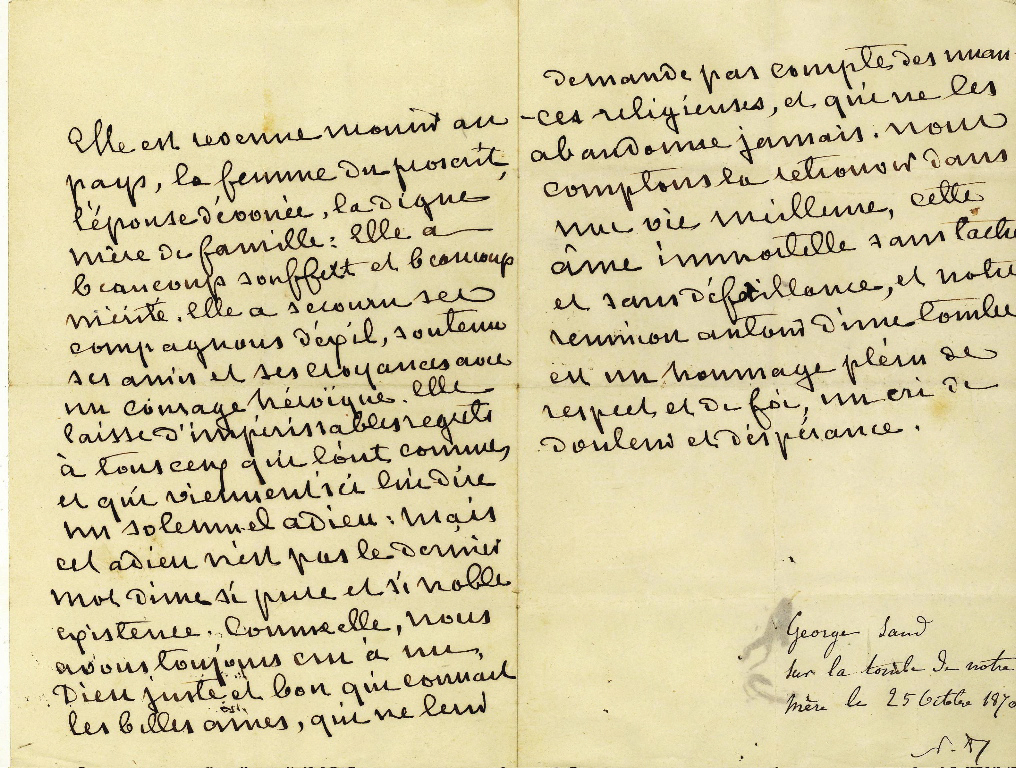 Elle est revenue mourir au
pays, la femme du proscrit,
l'épouse dévouée, la digne
mère de famille : Elle a
beaucoup souffert et beaucoup
mérité. Elle a secouru ses
compagnons d'éxil, soutenu
ses amis et ses croyances avec
un courage héroïque. Elle
laisse d'impérissables regrets
à tous ceux qui l'ont connue,
et qui viennent ici lui dire
un solemnel adieu : Mais
cet adieu n'est pas le dernier
mot d'une si pure et si noble
existence. Comme elle, nous
avons toujours cru à un
Dieu juste et bon qui connait
les belles âmes, qui ne leur
demande pas compte des nuan-
-ces religieuses, et qui ne les
abandonne jamais. Nous
comptons la retrouver dans
une vie meilleure, cette
âme immortelle sans tache
et sans défaillance, et notre
reunion autour d'une tombe
est un hommage plein de
respect et de foi, un cri de
douleur et d'éspérance.
George Sand
sur la tombe de notre
mère le 25 Octobre 1870